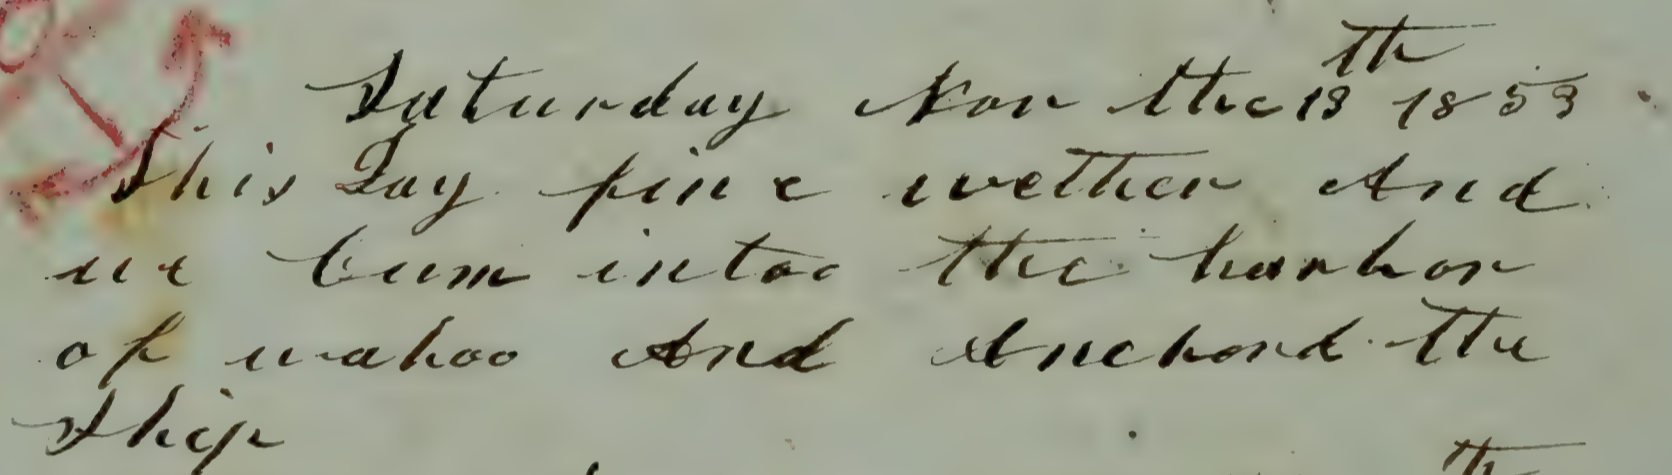 Saturday Nov the 19th 1853
This Day fine wether And
we Cum intoo the harbor
of wahoo And Anchord the
Ship